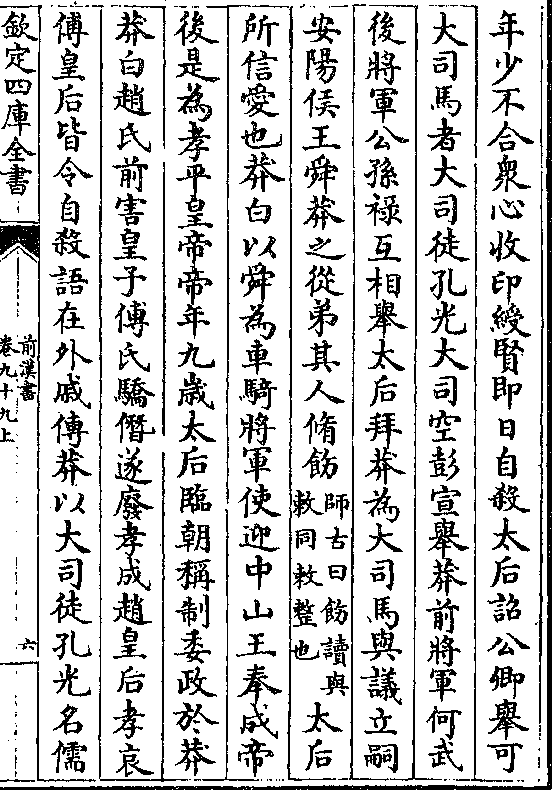 年少不合衆心收印綬賢即日自殺太后詔公卿舉可
大司馬者大司徒孔光大司空彭宣舉莽前將軍何武
後將軍公孫祿互相舉太后拜莽為大司馬與議立嗣
安陽侯王舜莽之從弟其人脩飭師古曰飭讀與敕同敕整也太后
所信愛也莽白以舜為車騎將軍使迎中山王奉成帝
後是為孝平皇帝帝年九歲太后臨朝稱制委政於莽
莽白趙氏前害皇子傅氏驕僭遂廢孝成趙皇后孝哀
傅皇后皆令自殺語在外戚傳莽以大司徒孔光名儒
欽定四庫全書
前漢書
卷九十九上
六